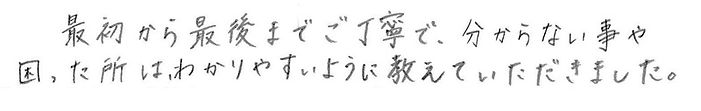 最初から最後までご丁寧で、分からない事や
困った所は、わかりやすいように教えていただきました。